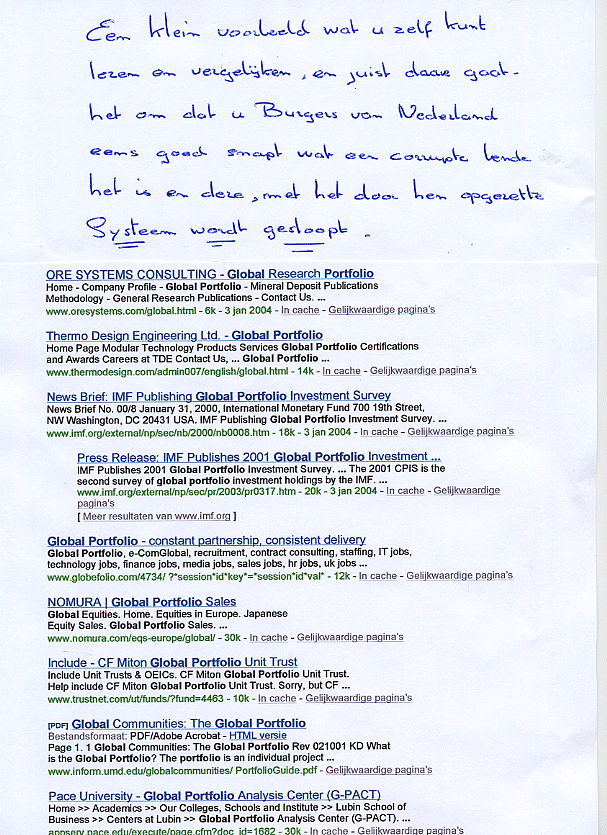 Een klein voorbeeld wat u zelf kunt
lezen en vergelijken, en juist daar gaat
het om dat u Burgers van Nederland
eens goed snapt wat een corrupte bende
het is en deze, met het door hen opgezette
Systeem wordt gesloopt.
ORE SYSTEMS CONSULTING - Global Research Portfolio
Home - Company Profile - Global Portfolio - Mineral Deposit Publications
Methodology - General Research Publications - Contact Us. ...
www.oresystems.com/global.html - 6k - 3 jan 2004 - In cache - Gelijkwaardige pagina's
Thermo Design Engineering Ltd. - Global Portfolio
Home Page Modular Technology Products Services Global Portfolio Certifications
and Awards Careers at TDE Contact Us, ... Global Portfolio ...
www.thermodesign.com/admin007/english/global.html - 14k - In cache - Gelijkwaardige pagina's
News Brief: IMF Publishing Global Portfolio Investment Survey
News Brief No. 00/8 January 31, 2000, International Monetary Fund 700 19th Street,
NW Washington, DC 20431 USA. IMF Publishing Global Portfolio Investment Survey. ...
www.imf.org/external/np/sec/nb/2000/nb0008.htm - 18k - 3 jan 2004 - In cache - Gelijkwaardige pagina's
Press Release: IMF Publishes 2001 Global Portfolio Investment ...
IMF Publishes 2001 Global Portfolio Investment Survey. ... The 2001 CPIS is the
second survey of global portfolio investment holdings by the IMF. ...
www.imf.org/external/np/sec/pr/2003/pr0317.htm - 20k - 3 jan 2004 - In cache - Gelijkwaardige
pagina's
[ Meer resultaten van www.imf.org ]
Global Portfolio - constant partnership, consistent delivery
Global Portfolio, e-ComGlobal, recruitment, contract consulting, staffing, IT jobs,
technology jobs, finance jobs, media jobs, sales jobs, hr jobs, uk jobs ...
www.globefolio.com/4734/ ?*session*id*key*=*session*id*val* - 12k - In cache - Gelijkwaardige pagina's
NOMURA | Global Portfolio Sales
Global Equities. Home. Equities in Europe. Japanese
Equity Sales. Global Portfolio Sales. ...
www.nomura.com/eqs-europe/global/ - 30k - In cache - Gelijkwaardige pagina's
Include - CF Miton Global Portfolio Unit Trust
Include Unit Trusts & OEICs. CF Miton Global Portfolio Unit Trust.
Help include CF Miton Global Portfolio Unit Trust. Sorry, but CF ...
www.trustnet.com/ut/funds/?fund=4463 - 10k - In cache - Gelijkwaardige pagina's
[PDF] Global Communities: The Global Portfolio
Bestandsformaat: PDF/Adobe Acrobat - HTML versie
Page 1. 1 Global Communities: The Global Portfolio Rev 021001 KD What
is the Global Portfolio? The portfolio is an individual project ...
www.inform.umd.edu/globalcommunities/ PortfolioGuide.pdf - Gelijkwaardige pagina's
Pace University - Global Portfolio Analysis Center (G-PACT)
Home >> Academics >> Our Colleges, Schools and Institute >> Lubin School of
Business >> Centers at Lubin >> Global Portfolio Analysis Center (G-PACT). ...
appserv.pace.edu/execute/page.cfm?doc_id=1682 - 30k - In cache - Gelijkwaardige pagina's